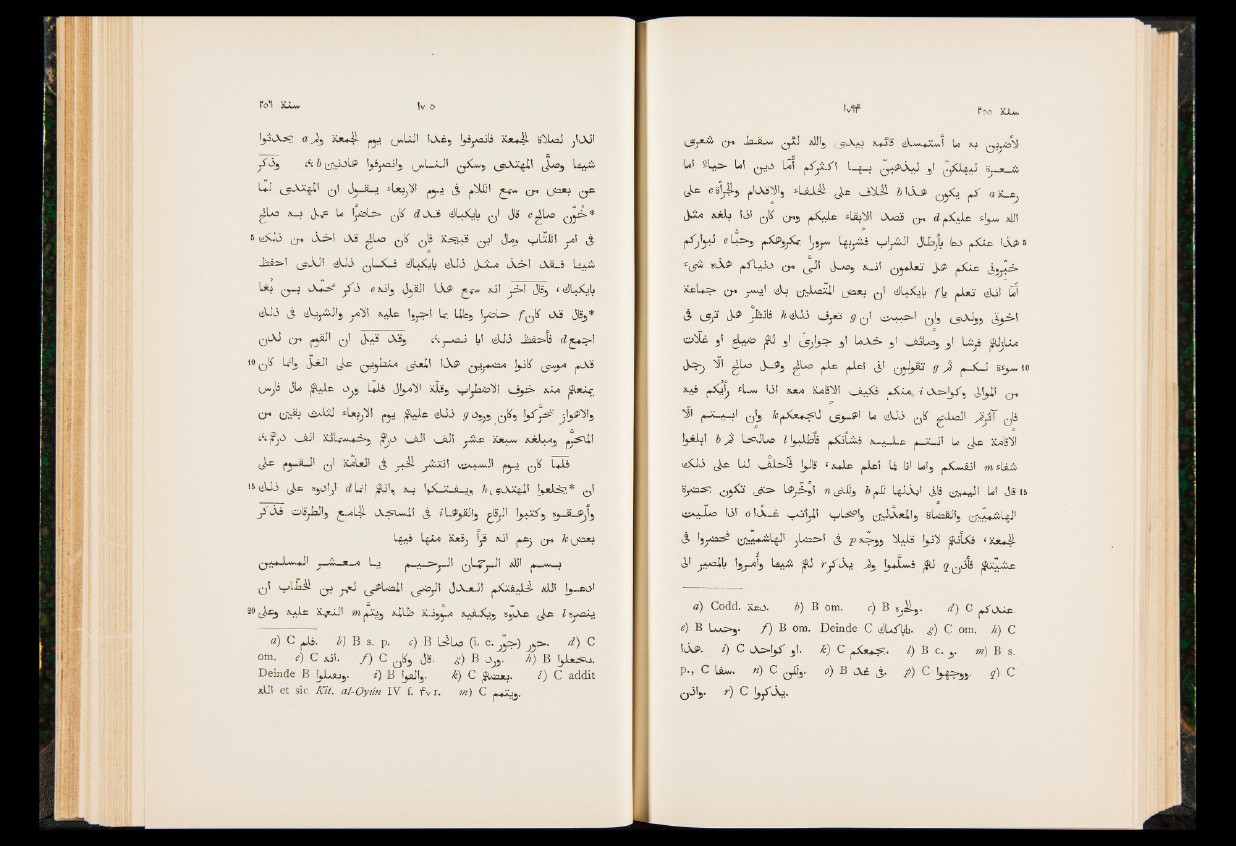 سنة ٢٥٥ ١٧٩۴
لأضربن به ما استمسك قائمه بيدى والله لئن سقط من شعرى
شعرة ليهلكنّ او ليذهبنّ بها اكثركم أما دين أما حياء أما
رعة a كم يكون هذا b الخلاف على الخلفاء والاقدام والجرأة c على
الله سواء عليكم d من قصد الإبقاء عليكم ومن كان اذا بلغه مثل
5 هذا عنكم دعا بأرطال الشراب فشربها سرورا بمكروهكم وحبّا e لبواركم
خبّرونى عنكم هل تعلمون انه وصل الىّ من دنياكم هذه شىء
أما انك تعلم يا f بايكباك ان بعض المتّصلين بك ايسر من جماعة
اخوتى وولدى وإن احببت ان g تعرف ذلك h فانظر هل ترى فى
منازلهم فرشا او وصائف او خدما او جوارى او لهم ضياع او غلّات
10 سوءة لكم ثم g تقولون انى اعلم علم صالح وهل صالح الّا رجل
من الموالى وكواحد i منكم فكيف الاقامة معه اذا ساء رأيكم فيه
فإن آثرتم الصلح كان ذلك ما اهوى لجمعكم k وإن ابيتم الّا
الاقامة على ما انتم عليه فشأنكم فاطلبوا l صالحا ثم b ابلغوا
شفاء m انفسكم واما انا فما اعلم علمه، قالوا فاحلف لنا على ذلك
15 قال اما اليمين فانى ابذلها لكم b ولكنى n اؤخّرها حتى تكون بحضرة
الهاشميّين والقضاة والمعدّلين واصحاب المراتب غدا o اذا صلّيت
الجمعة، فكأنّهم لانوا قليلا ووجّه p فى احضار الهاشميّين فحضروا فى
عشيّتهم فأذن q لهم فسلّموا ولم يذكر r لهم شيئا وأمروا بالمصير الى
a) Codd. b) B om. c) B d) C عندكم
e) B f) B om. Deinde C g) C om. h) C
هذا. i) C او كواحد. k) C l) B c. و. m) B s.
p., C n) C ولكن. o) B فى غد. p) C q) C
r) C يذكروا.
سنة ٢٥٦ ١٧٩٥
الدار لصلاة الجمعة فانصرفوا وغدا الناس يوم الجمعة ولم a يحدثوا
شيئا وصلّى المهتدى وسكن الناس وانصرفوا هادئين b، وذكر
عن بعض من سمع الكلام فى يوم الاربعاء يقول ان المهتدى لمّا
*خُوّن صالح c قال ان بايكباك قد d كان حاضرا ما عمل به صالح
5 فى امر الكتّاب ومال ابن قبيحة فإن كان صالح قد اخذ من ذلك
شيئا فقد اخذ مثل ذلك بايكباك فكان ذلك الذى احفظ
بايكباك، وقال آخر انه سمع هذا القول وانه e ذكر محمد بن بغا
*وقال قد كان f حاضرا وعالما بما اجروا عليه الامر والشريك فى ذلك
اجمع d فأحفظ ذلك ابا نصر، وقد قيل ان القوم من لدن
10 قدم موسى كانوا مضمرين هذا المعنى منطوين على الغلّ وانما كان
يمنعهم منه خوف الاضطراب وقلّة الاموال فلما ورد عليهم مال فارس
والاهواز تحرّكوا وكان ورود g ذلك عليهم يوم الاربعاء لثلث بقين من
المحرّم ومبلغه سبعة عشر الف الف درهم وخمسمائة الف درهم،
فلما كان يوم السبت انتشر الخبر فى العامّة ان القوم على
15 ان *يخلعوا المهتدى h ويفتكوا به وانهم انما d ارادوه على ذلك
وأرهقوه وكتبوا الرقاع وألقوها i فى المسجد الجامع والطرقات فذكر
بعض k من زعم انه قرأ رقعة منها فيها
بسم الله الرحمن الرحيم يا معشر المسلمين
ادعوا الله لخليفتكم العدل الرضى المضاهى لعمر بن الخطّاب ان
20 ينصره l على عدوّه ويكفيه مؤونة ظالمه ويتمّ m النعمة عليه وعلى
a) C فلم. b) B s. p. c) B (i. e. d) C
om. e) C انه. f) C قال وكان. g) B ورد. h) B
Deinde B i) B والقوا. k) C بعضهم. l) C addit
الله et sic Kit. al-Oyún IV f. ٢٧١. m) C